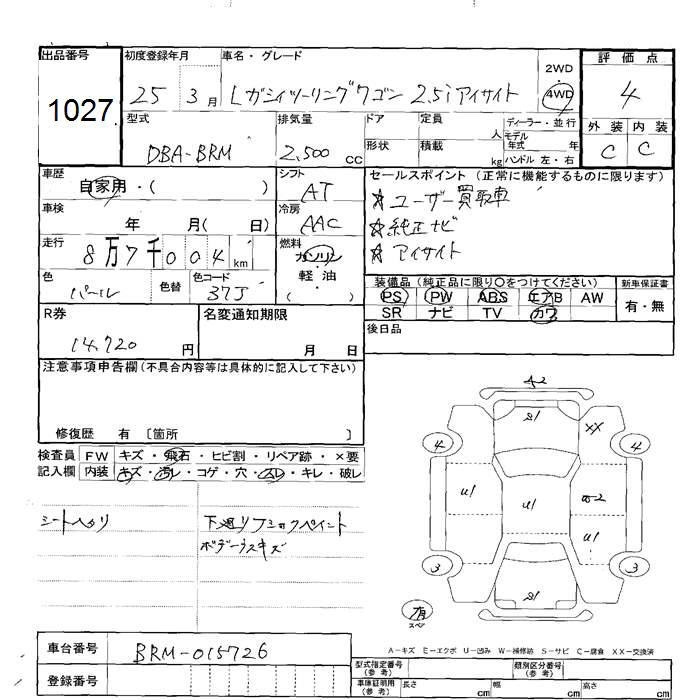 出品番号 初度登録年月 車名・グレード 評価点
1027 25 3月 Lガシィツーリングワゴン 2.5i アイサイト 2WD 4WD 4
型式 排気量 ドア 定員 人 ディーラー・並行 外装 内装
DBA-BRM 2,500 cc 形状 積載 kg モデル年式 年 ハンドル 左・右 C C
車歴 自家用・( ) シフト AT
車検 年 月( 日) 冷房 AAC
走行 8万7千004km 燃料 ガソリン 軽・油 ( )
色 パール 色替 色コード 37J
セールスポイント (正常に機能するものに限ります)
☆ユーザー買取車
☆純正ナビ
☆アイサイト
装備品 (純正品に限り○をつけてください) 新車保証書
PS PW ABS エアB AW 有・無
SR ナビ TV カワ
後日品
R券 14,720円 名変通知期限 月 日
注意事項申告欄(不具合内容等は具体的に記入して下さい)
修復歴 有 〔箇所 〕
検査員 FW キズ・飛石・ヒビ割・リペア跡・×要
記入欄 内装 キズ・汚レ・コゲ・穴・スレ・キレ・破レ
シートヘタリ 下廻リフショックペイント
ボデーウスキズ
A2
S1
XX
4 4
U1 U1 W2
U1
3 3
S1
有
スペア
A-キズ E-エクボ U-凹み W-補修跡 S-サビ C-腐食 XX-交換済
車台番号 BRM-015726
登録番号
型式指定番号(参考) 類別区分番号(参考)
車庫証明用(参考) 長さ cm 幅 cm 高さ cm